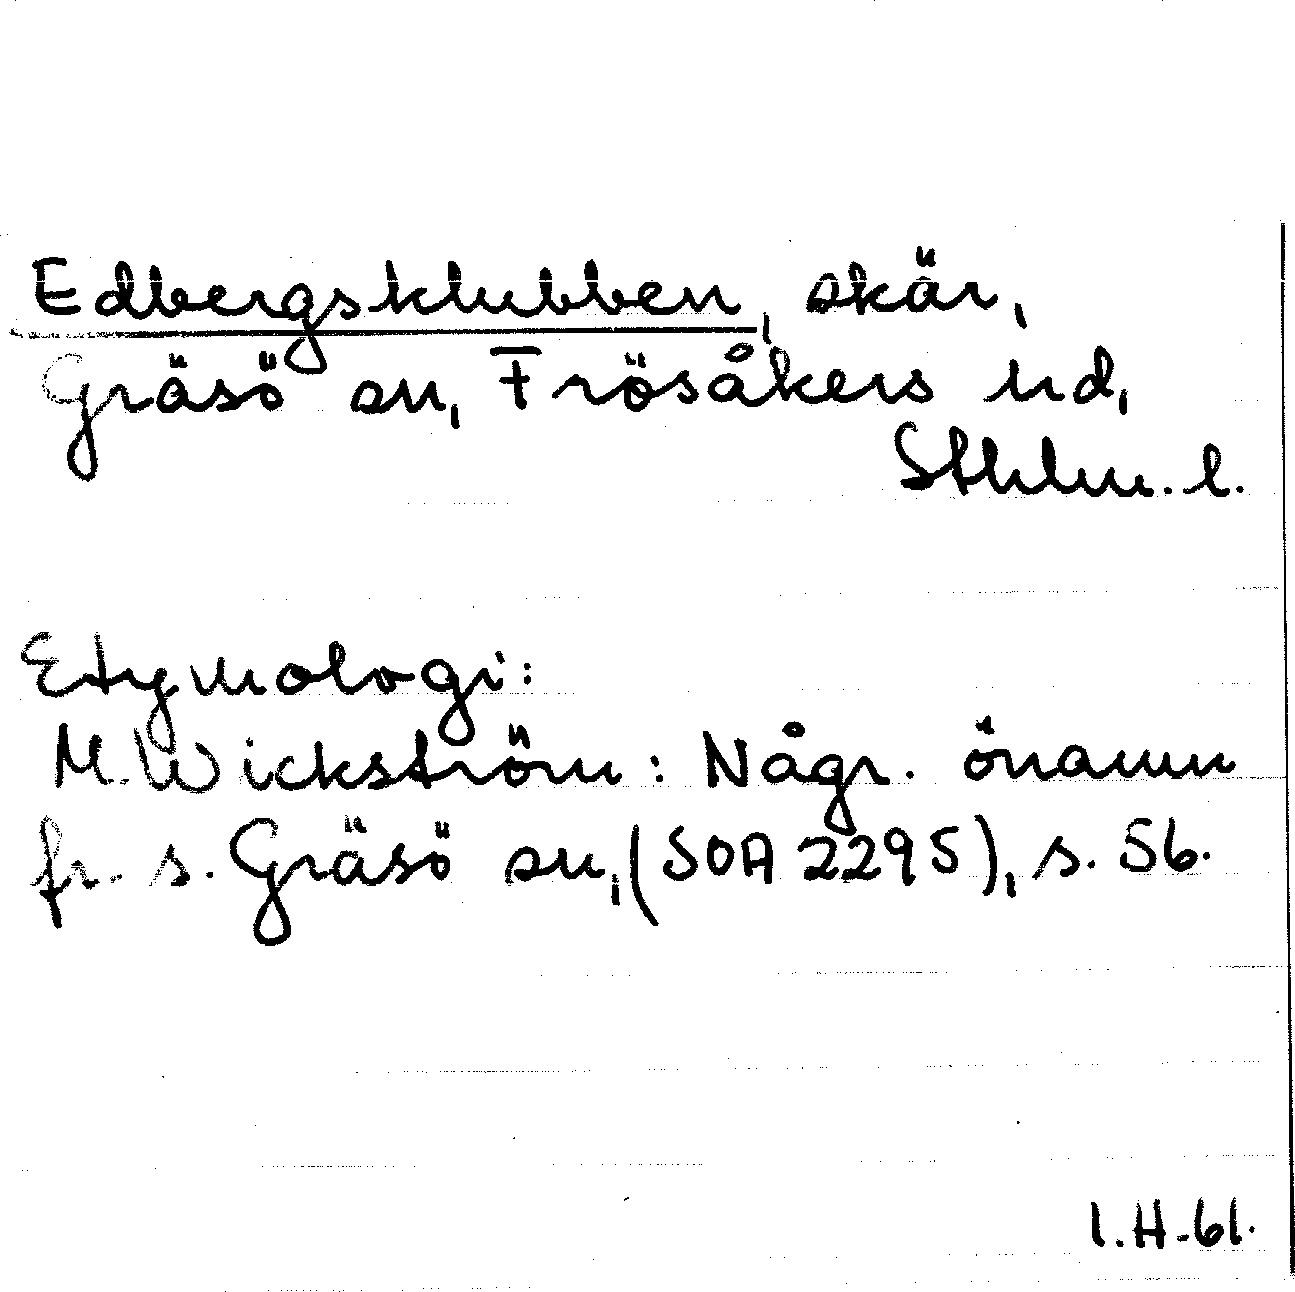 Edbergsklubben, skär,
Gräsö sn, Frösåkers hd,
Sthlm. l.
Etymologi:
M. Wickström: Någr. önamn
fr. s. Gräsö sn, (SOA 2295), s. 56.
I.H-61.